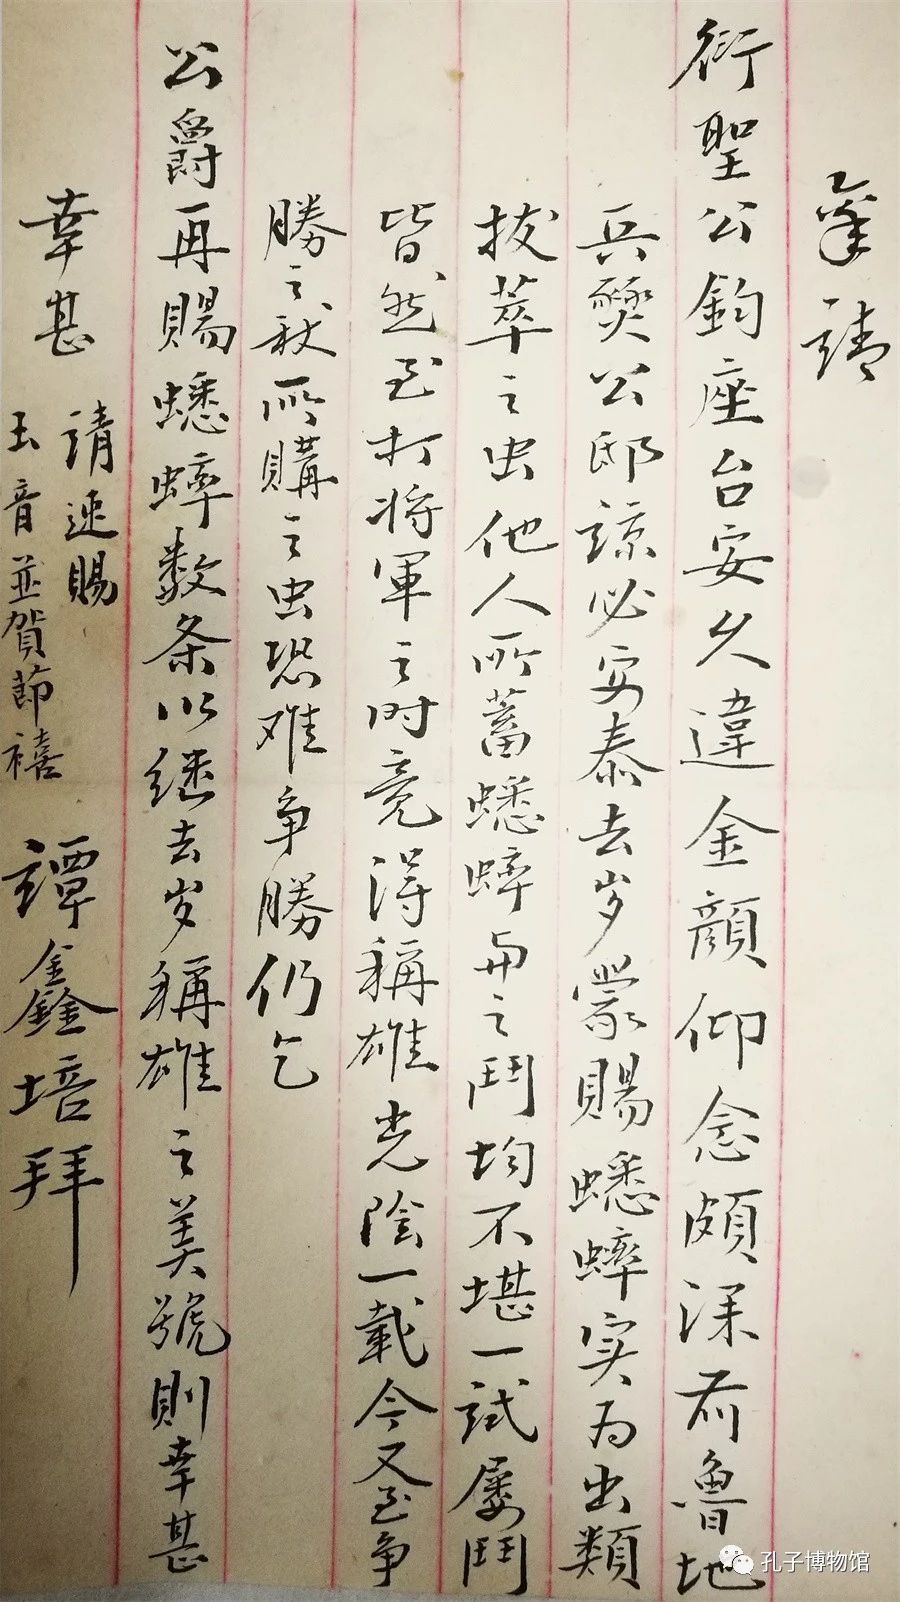 肅請
衍聖公鈞座台安久違金顏仰念頗深前魯地
兵燹公邸諒必安泰去岁蒙賜蟋蟀实为出類
拔萃之虫他人所蓄蟋蟀与之鬥均不堪一試屡鬥
皆然至打将軍之时竟得稱雄光陰一載今又至争
勝之秋所購之虫恐难争勝仍乞
公爵再賜蟋蟀数条以继去岁稱雄之美號則幸甚
幸甚
請速賜
玉音並賀節禧
譚鑫培拜
孔子博物馆